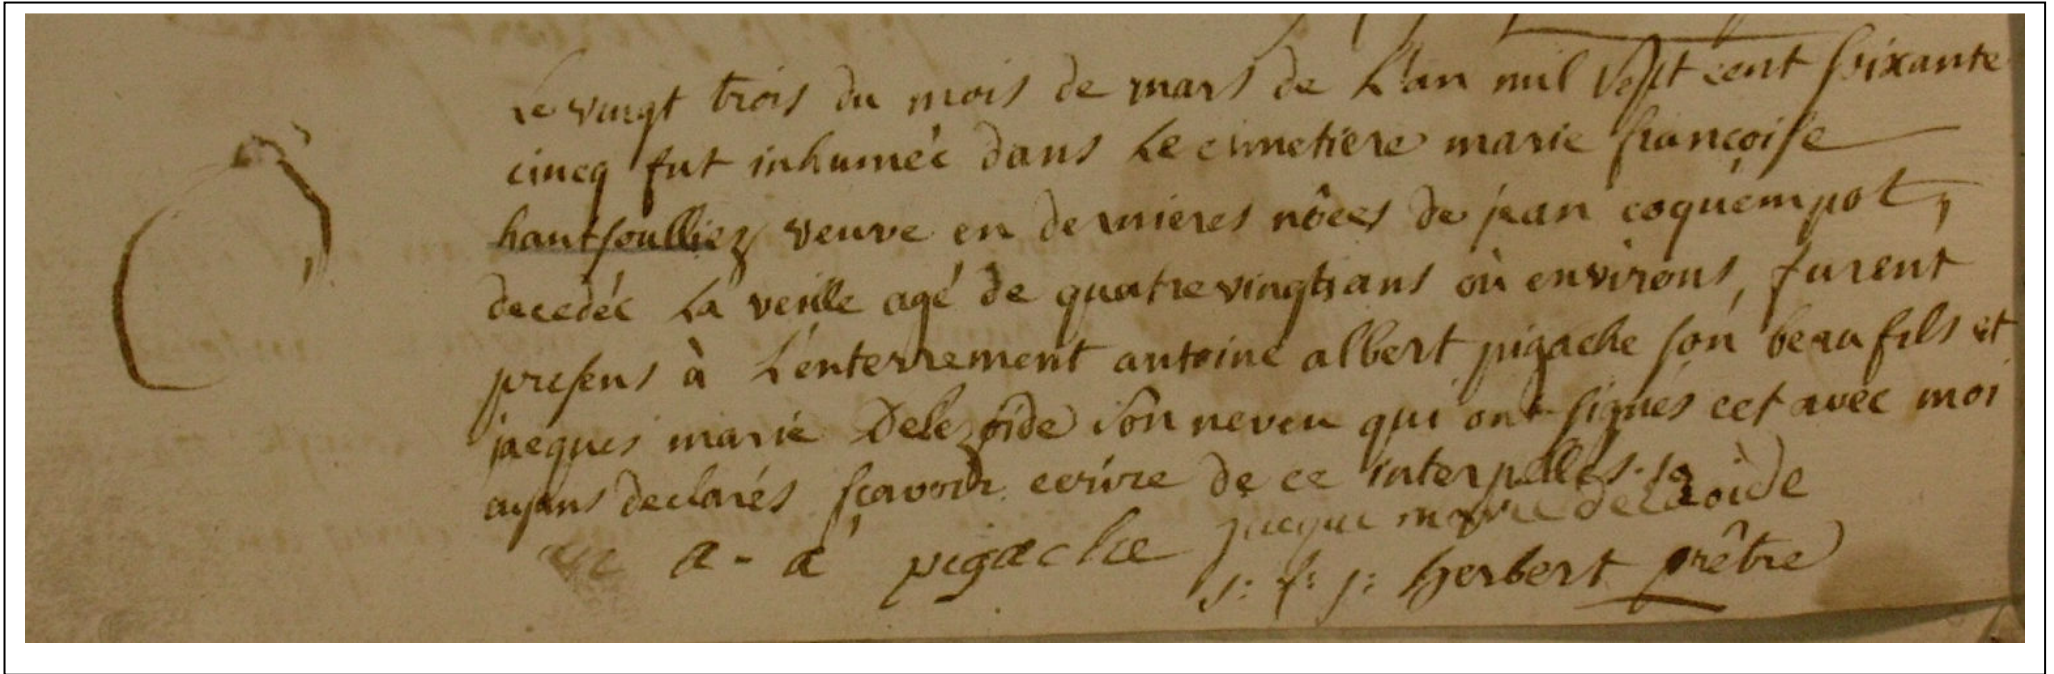 Le vingt trois du mois de mars de L'an mil sept cent soixante
cincq fut inhumée dans Le cimetiere marie françoise
hautsoulliez veuve en dernieres nôces de jean coquempot,
decedée La veille agé de quatrevingts ans où environs, furent
presens à L'enterrement antoine albert pigache son beau fils et
jacques marie Delezoide son neveu qui ont signés cet avec moi
ayans declarés sçavoir ecrire de ce interpellés.
a - a pigache jacque marie delezoide
j: f: j: herbert prêtre